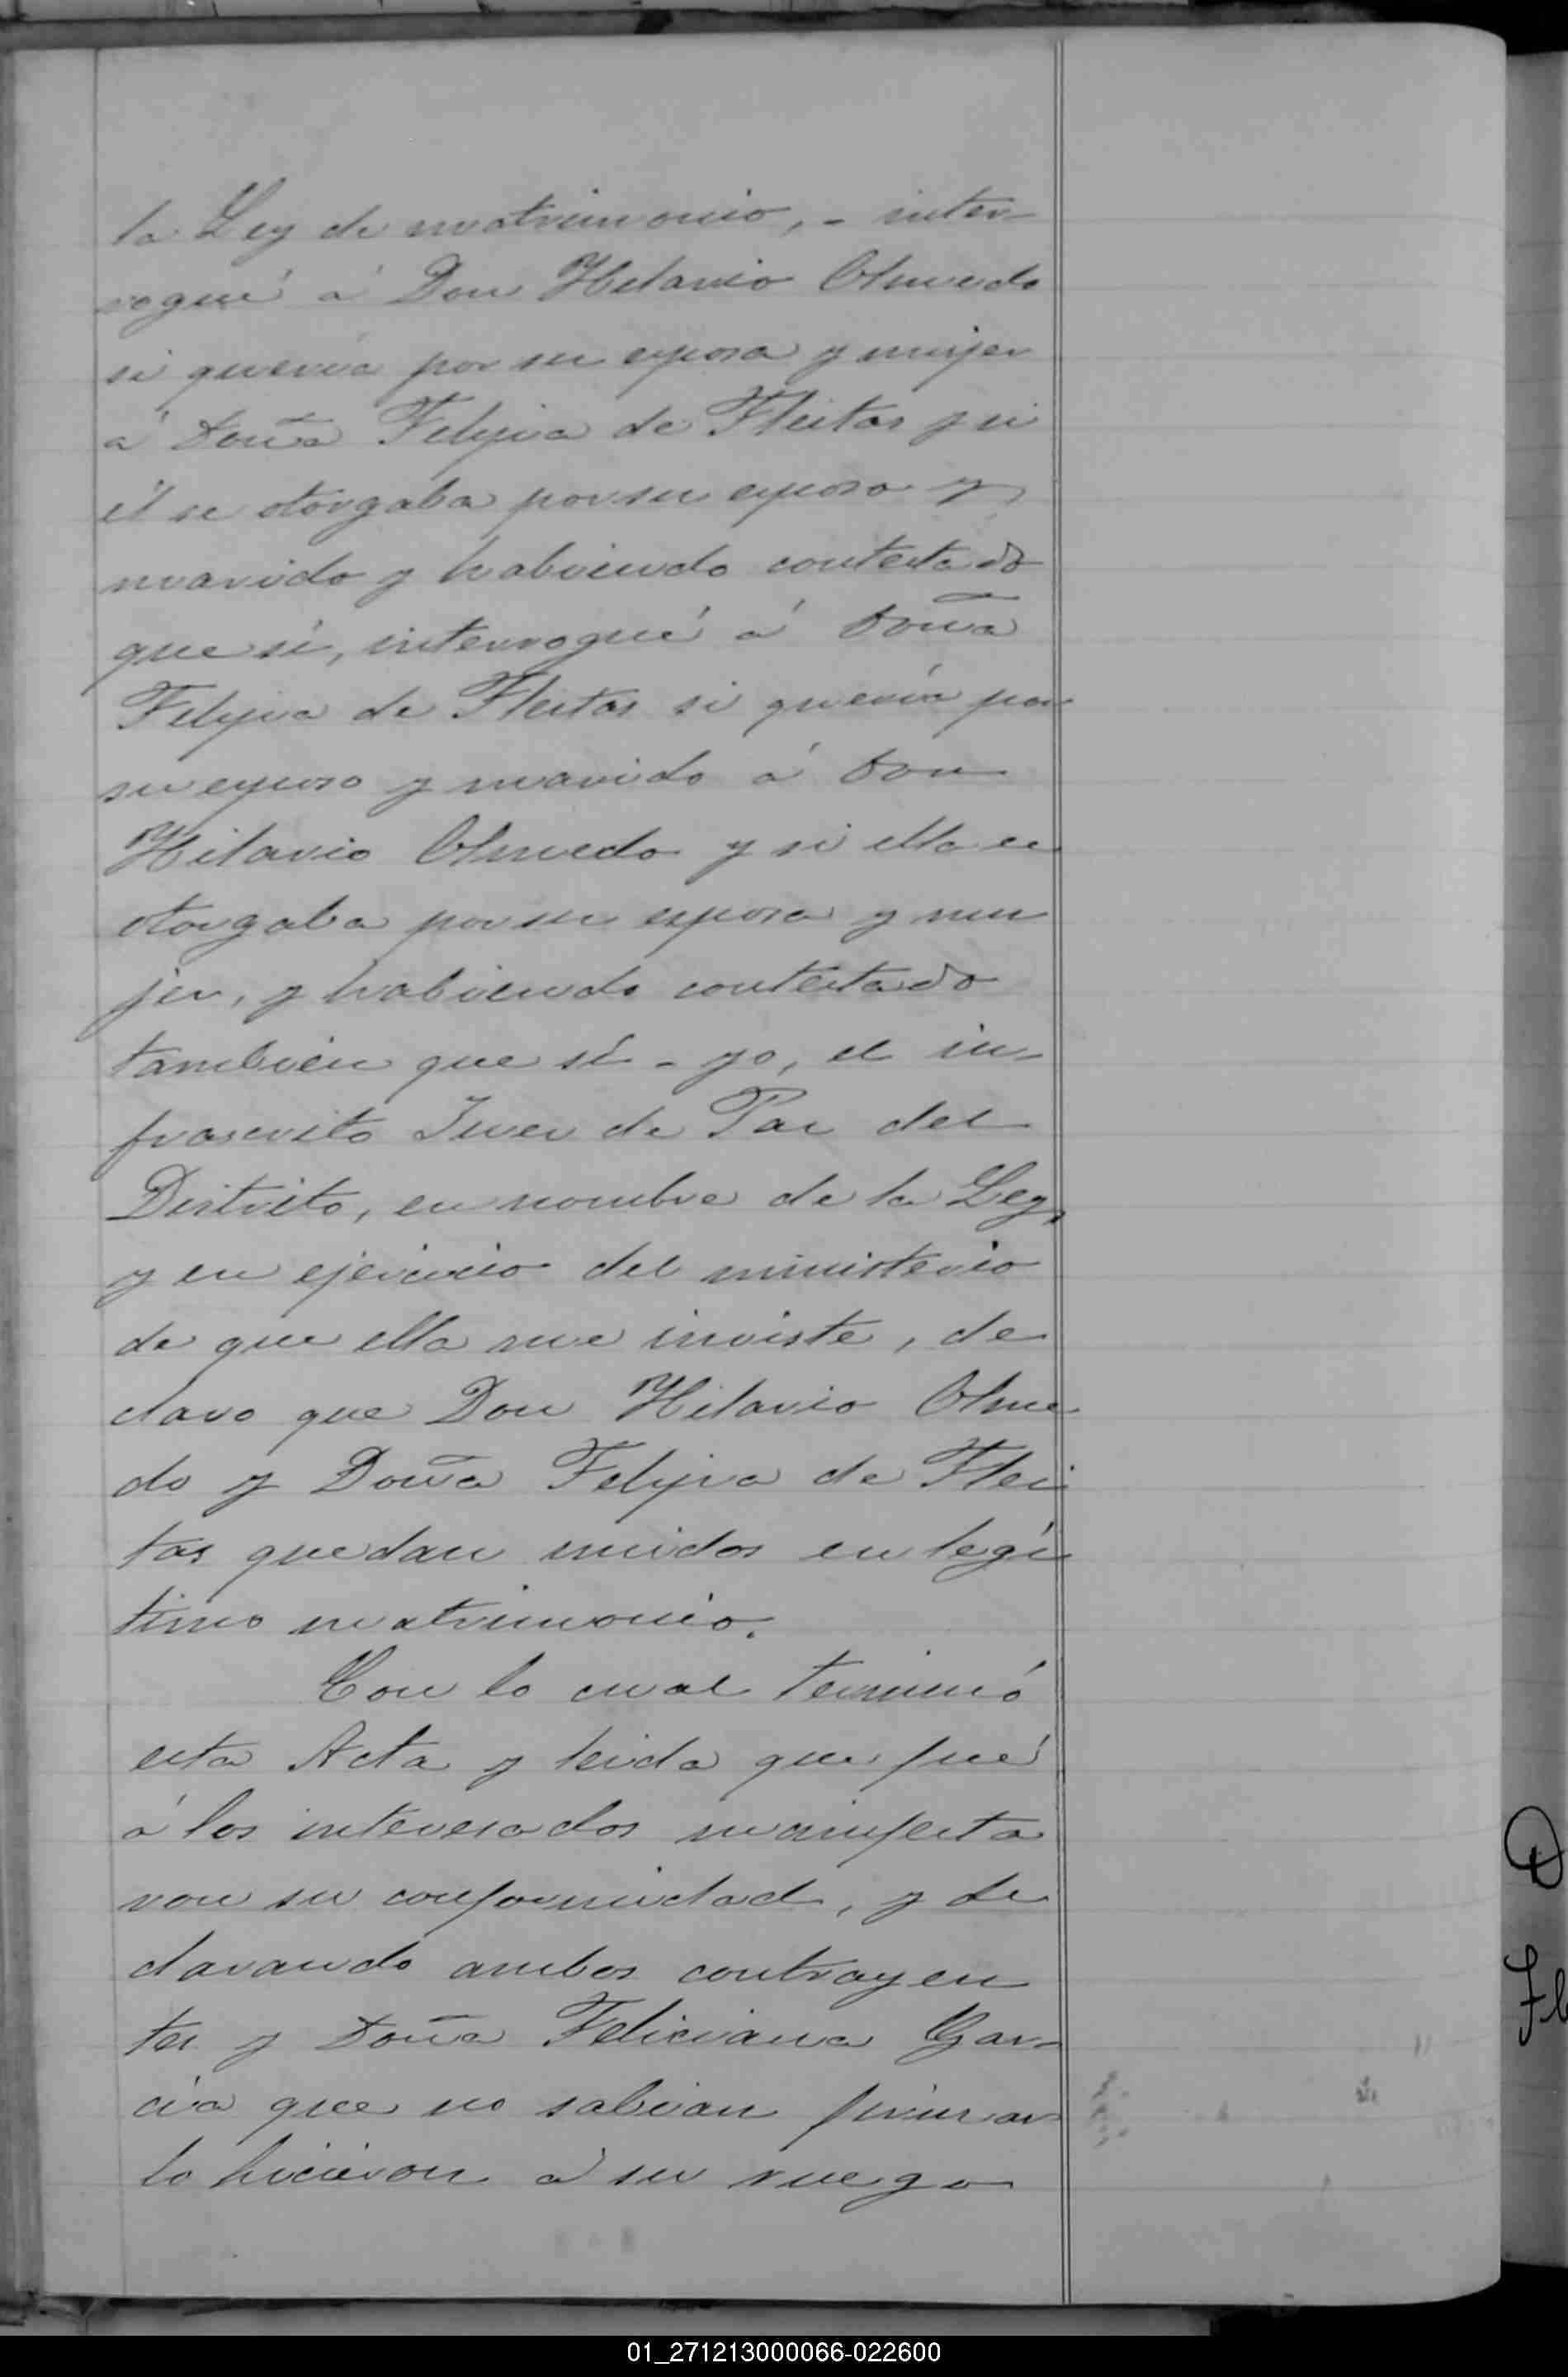 la Ley de matrimonio, - inter-
rogué á Don Hilario Olmedo
si quería por su esposa y mujer
á Doña Felipa de Fleitas y si
él se otorgaba por su esposo y
marido y habiendo contestado
que sí, interrogué á Doña
Felipa de Fleitas si quería por
su esposo y marido á Don
Hilario Olmedo y si ella se
otorgaba por su esposa y mu
jer, y habiendo contestado
también que sí - yo, el in-
frascrito Juez de Paz del
Distrito, en nombre de la Ley,
y en ejercicio del ministerio
de que ella me inviste, de
claro que Don Hilario Olme
do y Doña Felipa de Flei
tas quedan unidos en legí
timo matrimonio.
Con lo cual terminó
esta Acta y leida que fué
á los interesados manifesta
ron su conformidad, y de
clarando ambos contrayen
tes y Doña Feliciana Gar-
cía que no sabian firmar
lo hicieron á su ruego
D
Fl
01_271213000066-022600